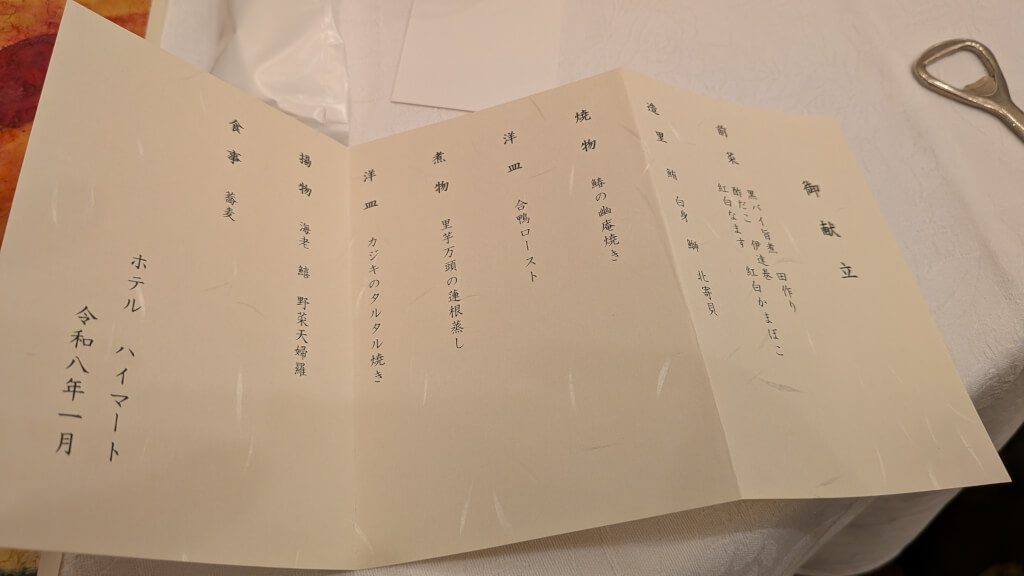 御献立
前菜 黒バイ旨煮 田作り
酢だこ 伊達巻 紅白かまぼこ
紅白なます
造里 鮪 白身 鰤 北寄貝
焼物 鰆の幽庵焼き
洋皿 合鴨ロースト
煮物 里芋万頭の蓮根蒸し
洋皿 カジキのタルタル焼き
揚物 海老 鱚 野菜天婦羅
食事 蕎麦
ホテル ハイマート
令和八年一月